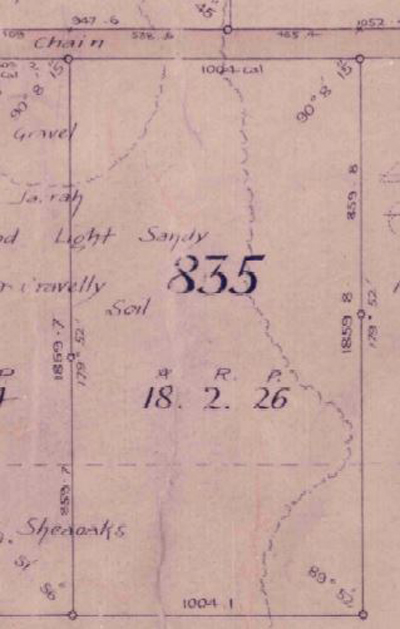 947.6
1052
Chain
1004 cal
15'
90° 8'
15'
90° 8'
Gravel
859.8
Jarrah
Light Sandy
835
Gravelly
Soil
1859.7
179° 52'
1859 8
179° 52'
A R. P.
18. 2. 26
859.7
Sheaoaks
89° 52'
1004.1